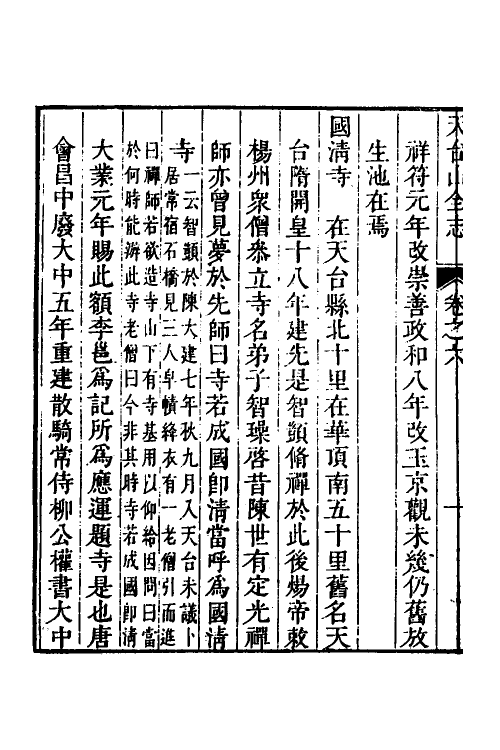 天台山全志 卷之六 十
祥符元年改崇善政和八年改玉京觀未幾仍舊放
生池在焉
國清寺 在天台縣北十里在華頂南五十里舊名天
台隋開皇十八年建先是智顗脩禪於此後煬帝敕
楊州衆僧叅立寺名弟子智璪啓昔陳世有定光禪
師亦曾見夢於先師曰寺若成國卽清當呼爲國清
寺一云智顗於陳大建七年秋九月入天台未議卜
居常宿石橋見三人皁幘絳衣有一老僧引而進
曰禪師若欲造寺山下有寺基用以仰給因問曰當
於何時能辦此寺老僧曰今非其時寺若成國卽清
大業元年賜此額李邕爲記所爲應運題寺是也唐
會昌中廢大中五年重建散騎常侍柳公權書大中